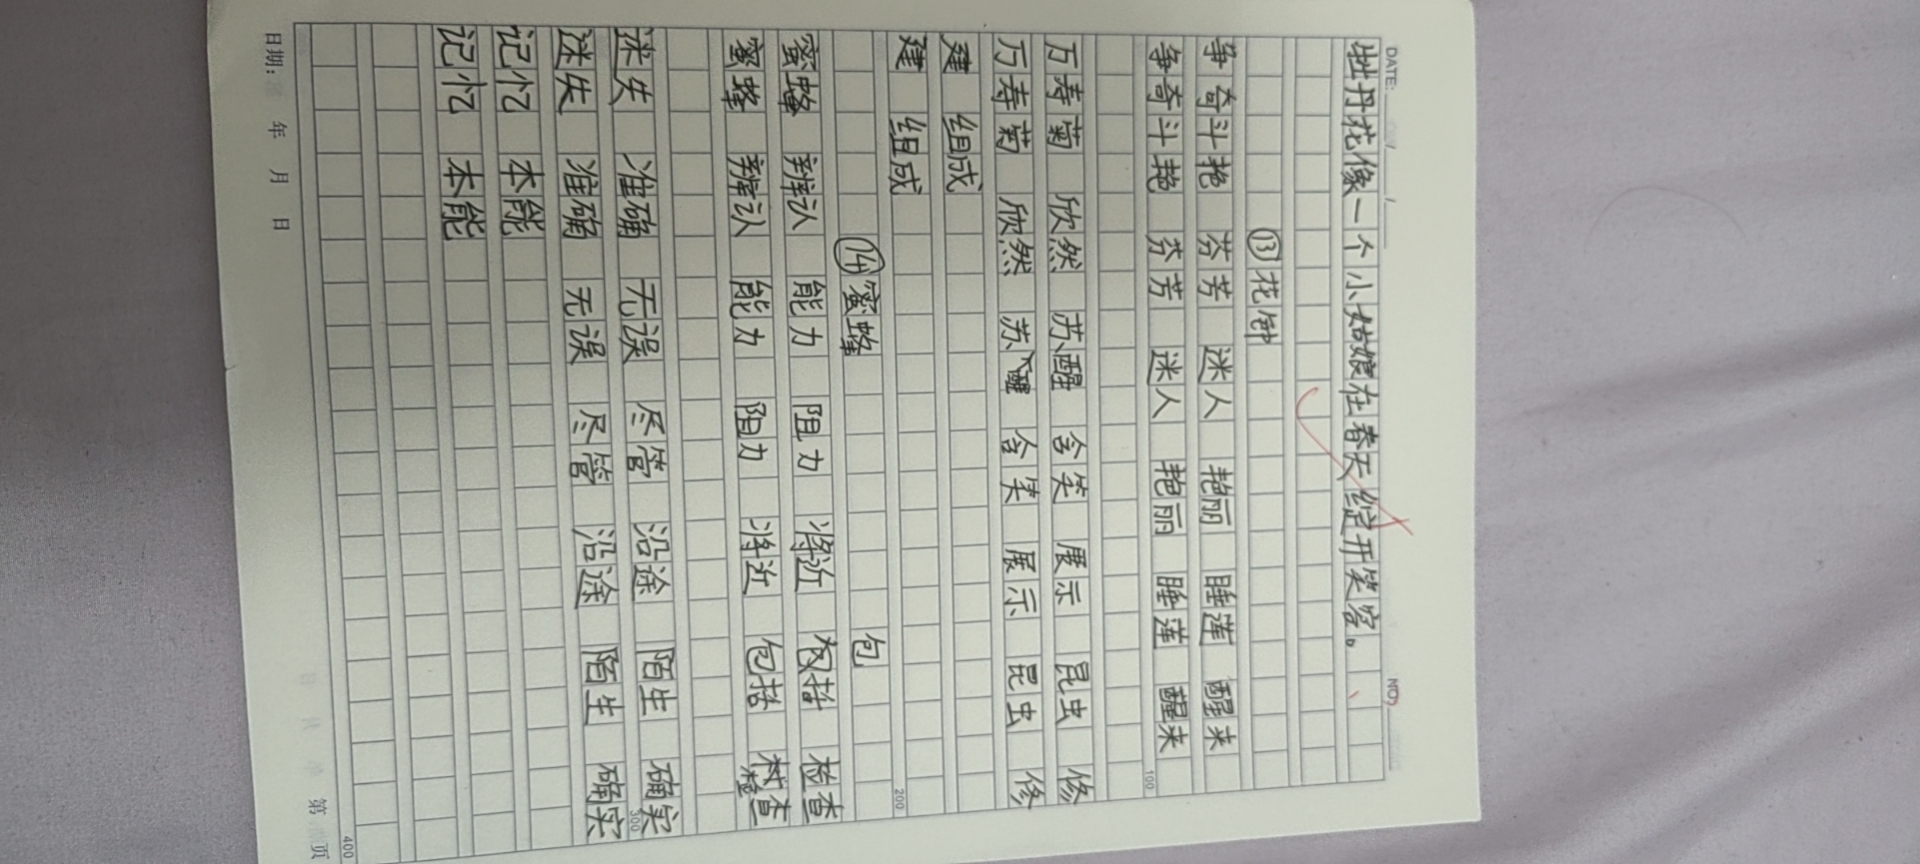 DATE: / / NO
牡丹花像一个小姑娘在春天绽开笑容。
⑬花钟
争奇斗艳 芬芳 迷人 艳丽 睡莲 醒来
争奇斗艳 芬芳 迷人 艳丽 睡莲 醒来
100
万寿菊 欣然 苏醒 含笑 展示 昆虫 修
万寿菊 欣然 苏醒 含笑 展示 昆虫 修
建 组成
建 组成
200
⑭蜜蜂 包
蜜蜂 辨认 能力 阻力 将近 包括 检查
蜜蜂 辨认 能力 阻力 将近 包括 检查
迷失 准确 无误 尽管 沿途 陌生 确实
300
迷失 准确 无误 尽管 沿途 陌生 确实
记忆 本能
记忆 本能
400
日期: 年 月 日 第 页